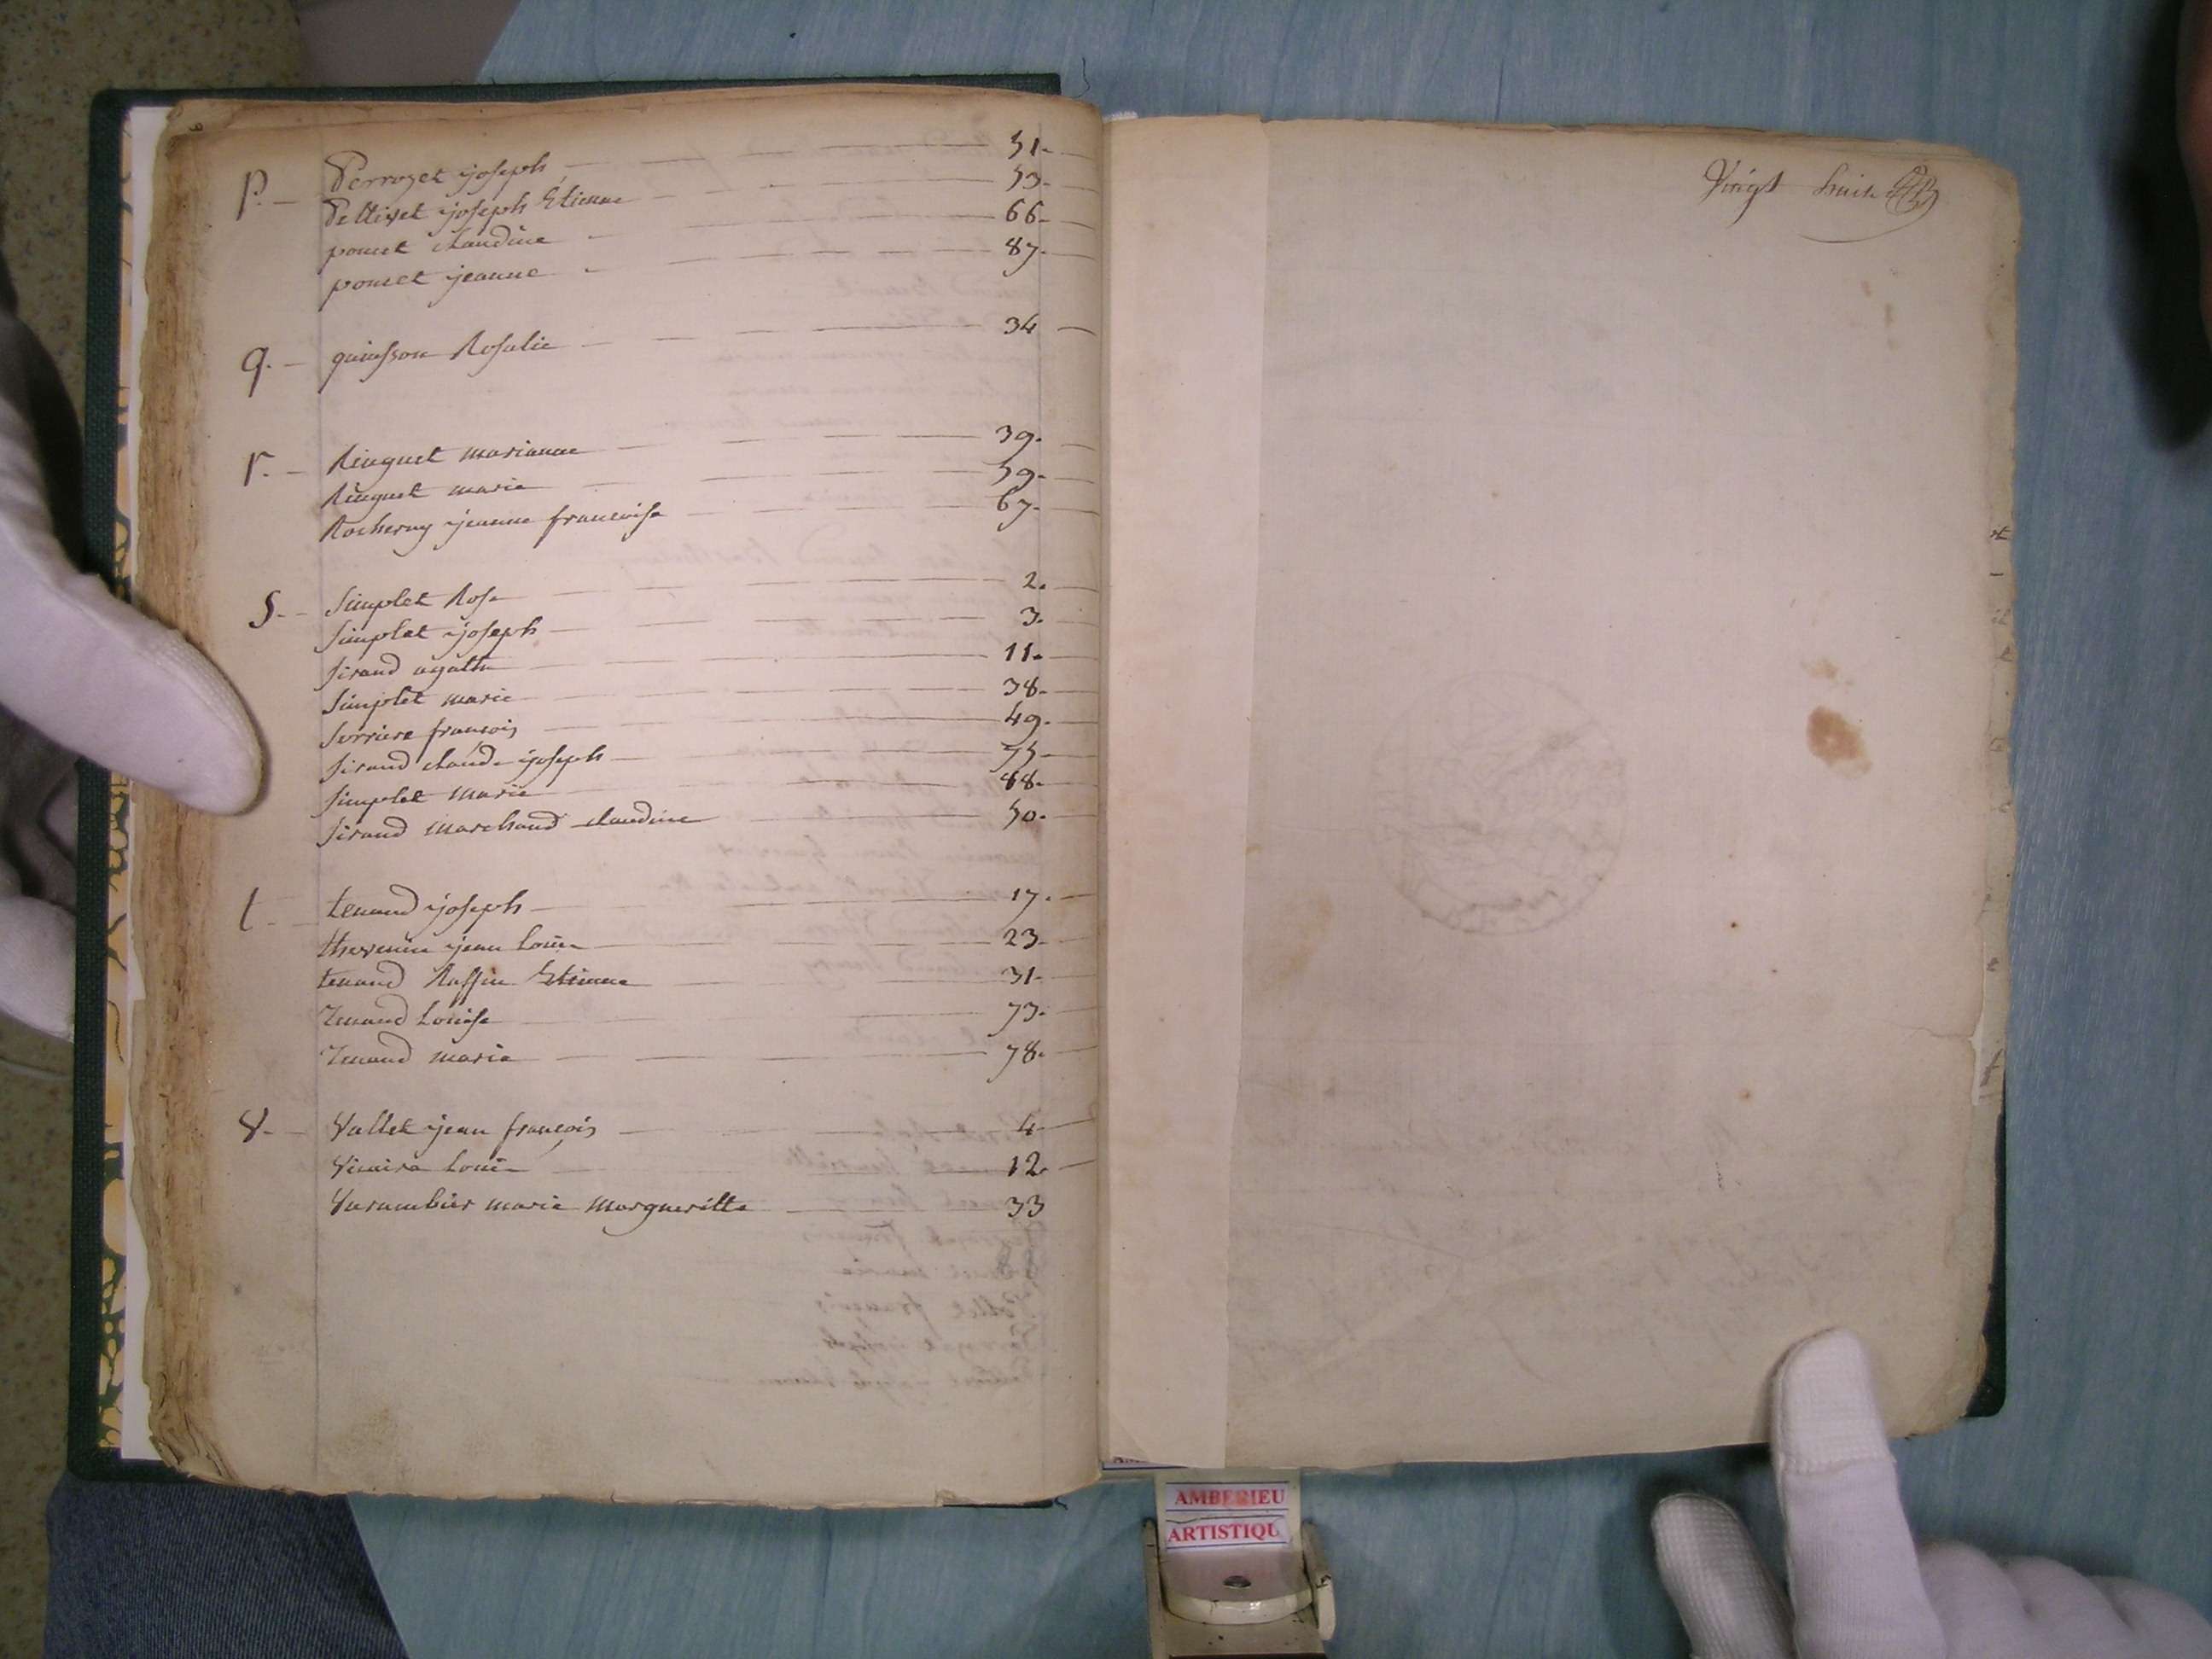 p. — Perrozet joseph — 51.
Pettivet joseph Etienne — 53.
poncet claudine — 66.
poncet jeanne — 87.
q. — quinsson Rosalie — 34
r. — Ringuet marianne — 39.
Ringuet marie — 59.
jeanne francoise — 67.
S. — Simplet Rose — 2.
Simplet joseph — 3.
Sirand agathe — 11.
Simplet marie — 38.
Serriere francois — 49.
Sirand claude joseph — 75.
Simplet marie — 88.
Sirand marchand claudine — 50.
t. — tenand joseph — 17.
thevenin jean Louis — 23.
tenand Ruffin Etienne — 31.
Tenand Louise — 73.
Tenand marie — 78.
V. — Vallet jean françois — 4
Vicaire Louis — 12.
Varambier marie Margueritte — 33
Vingt huit
AMBERIEU
ARTISTIQU